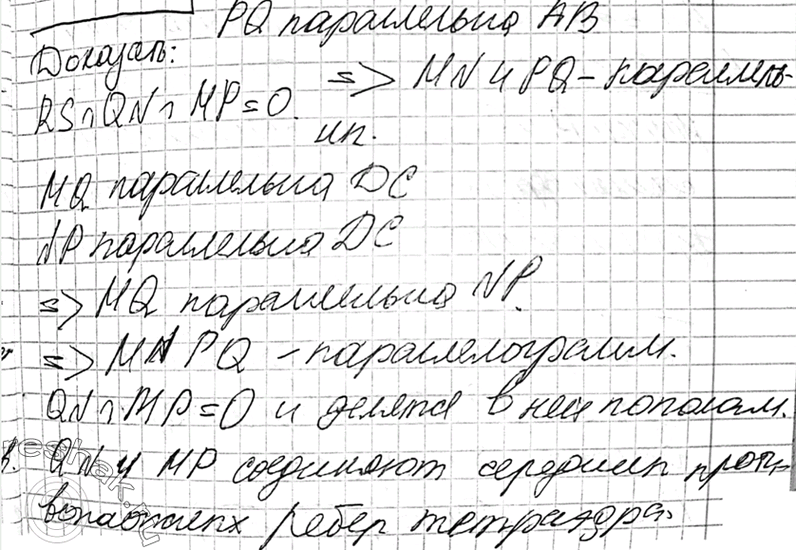 PQ параллельна AB
Доказать:
RS∩QN∩MP=O.
=> MN и PQ – параллель-
ны.
MQ параллельна DC
NP параллельна DC
=> MQ параллельна NP.
=> MNPQ – параллелограмм.
QN∩MP=O и делятся в ней пополам.
QN и MP соединяют середины проти-
воположных ребер тетраэдра.
reshak.ru